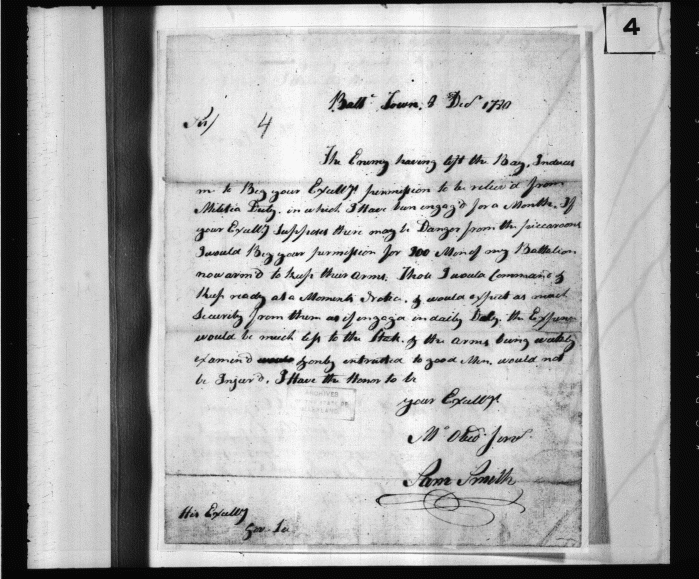 4
Balt. Town, 8 Decr. 1780
Sir/ 4
The Enemy having left the Bay, Induces
me to Beg your Excelly's permission to be reliev'd from
Militia Duty. in which I Have been engag'd for a Month. If
your Excelly Supposes there may be Danger from the piccaroons
I would Beg your permission for 100 Men of my Battalion
now arm'd to keep their arms. Those I would Command &
keep ready at a Moments Notice. & would expect as much
Security from them as if engag'd in daily Duty. the Expence
would be much less to the State. & the arms being weekly
examin'd & only entrusted to good Men, would not
be Injur'd. I Have the Honor to be
your Excelly's
Mo. Obed. Servt.
Sam Smith
ARCHIVES
His Excelly
Gov. Lee